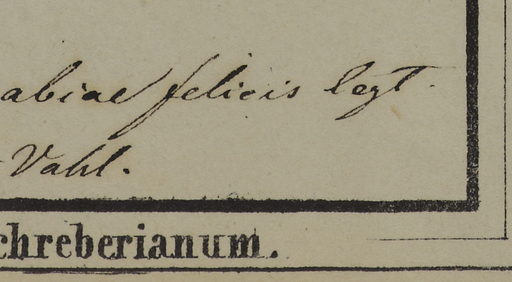 abiae felicis legt.
Vahl.
chreberianum.